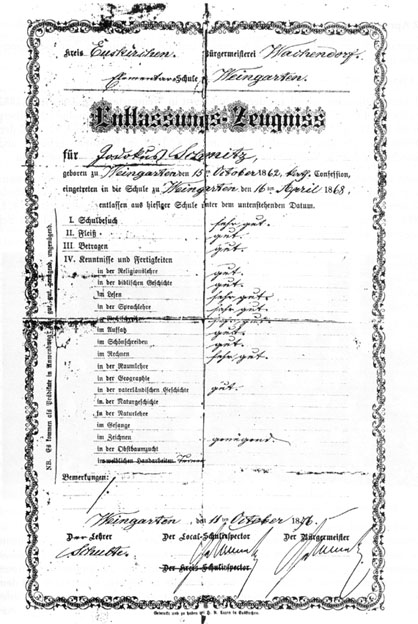 Kreis Euskirchen. Bürgermeisterei Wachendorf.
Elementar-Schule Weingarten.
Entlassungs-Zeugniss
für Jodokus Schmitz,
geboren zu Weingarten den 15ten October 1862, kath. Confession,
eingetreten in die Schule zu Weingarten den 16ten April 1868,
entlassen aus hiesiger Schule unter dem untenstehenden Datum.
I. Schulbesuch sehr gut.
II. Fleiß gut.
III. Betragen gut.
IV. Kenntnisse und Fertigkeiten
in der Religionslehre gut.
in der biblischen Geschichte gut.
im Lesen sehr gut.
in der Sprachlehre sehr gut.
im Aufsatz gut.
im Schönschreiben gut.
im Rechnen sehr gut.
in der Raumlehre
in der Geographie
in der vaterländischen Geschichte gut.
in der Naturgeschichte
in der Naturlehre
im Gesange
im Zeichnen genügend.
in der Obstbaumzucht
in weiblichen Handarbeiten Turnen
NB. Es kommen als Prädikate in Anwendung: sehr gut, gut, genügend, ungenügend.
Bemerkungen:
Weingarten, den 11ten October 1876.
Der Lehrer Der Local-Schulinspector Der Bürgermeister
Der Kreis-Schulinspector